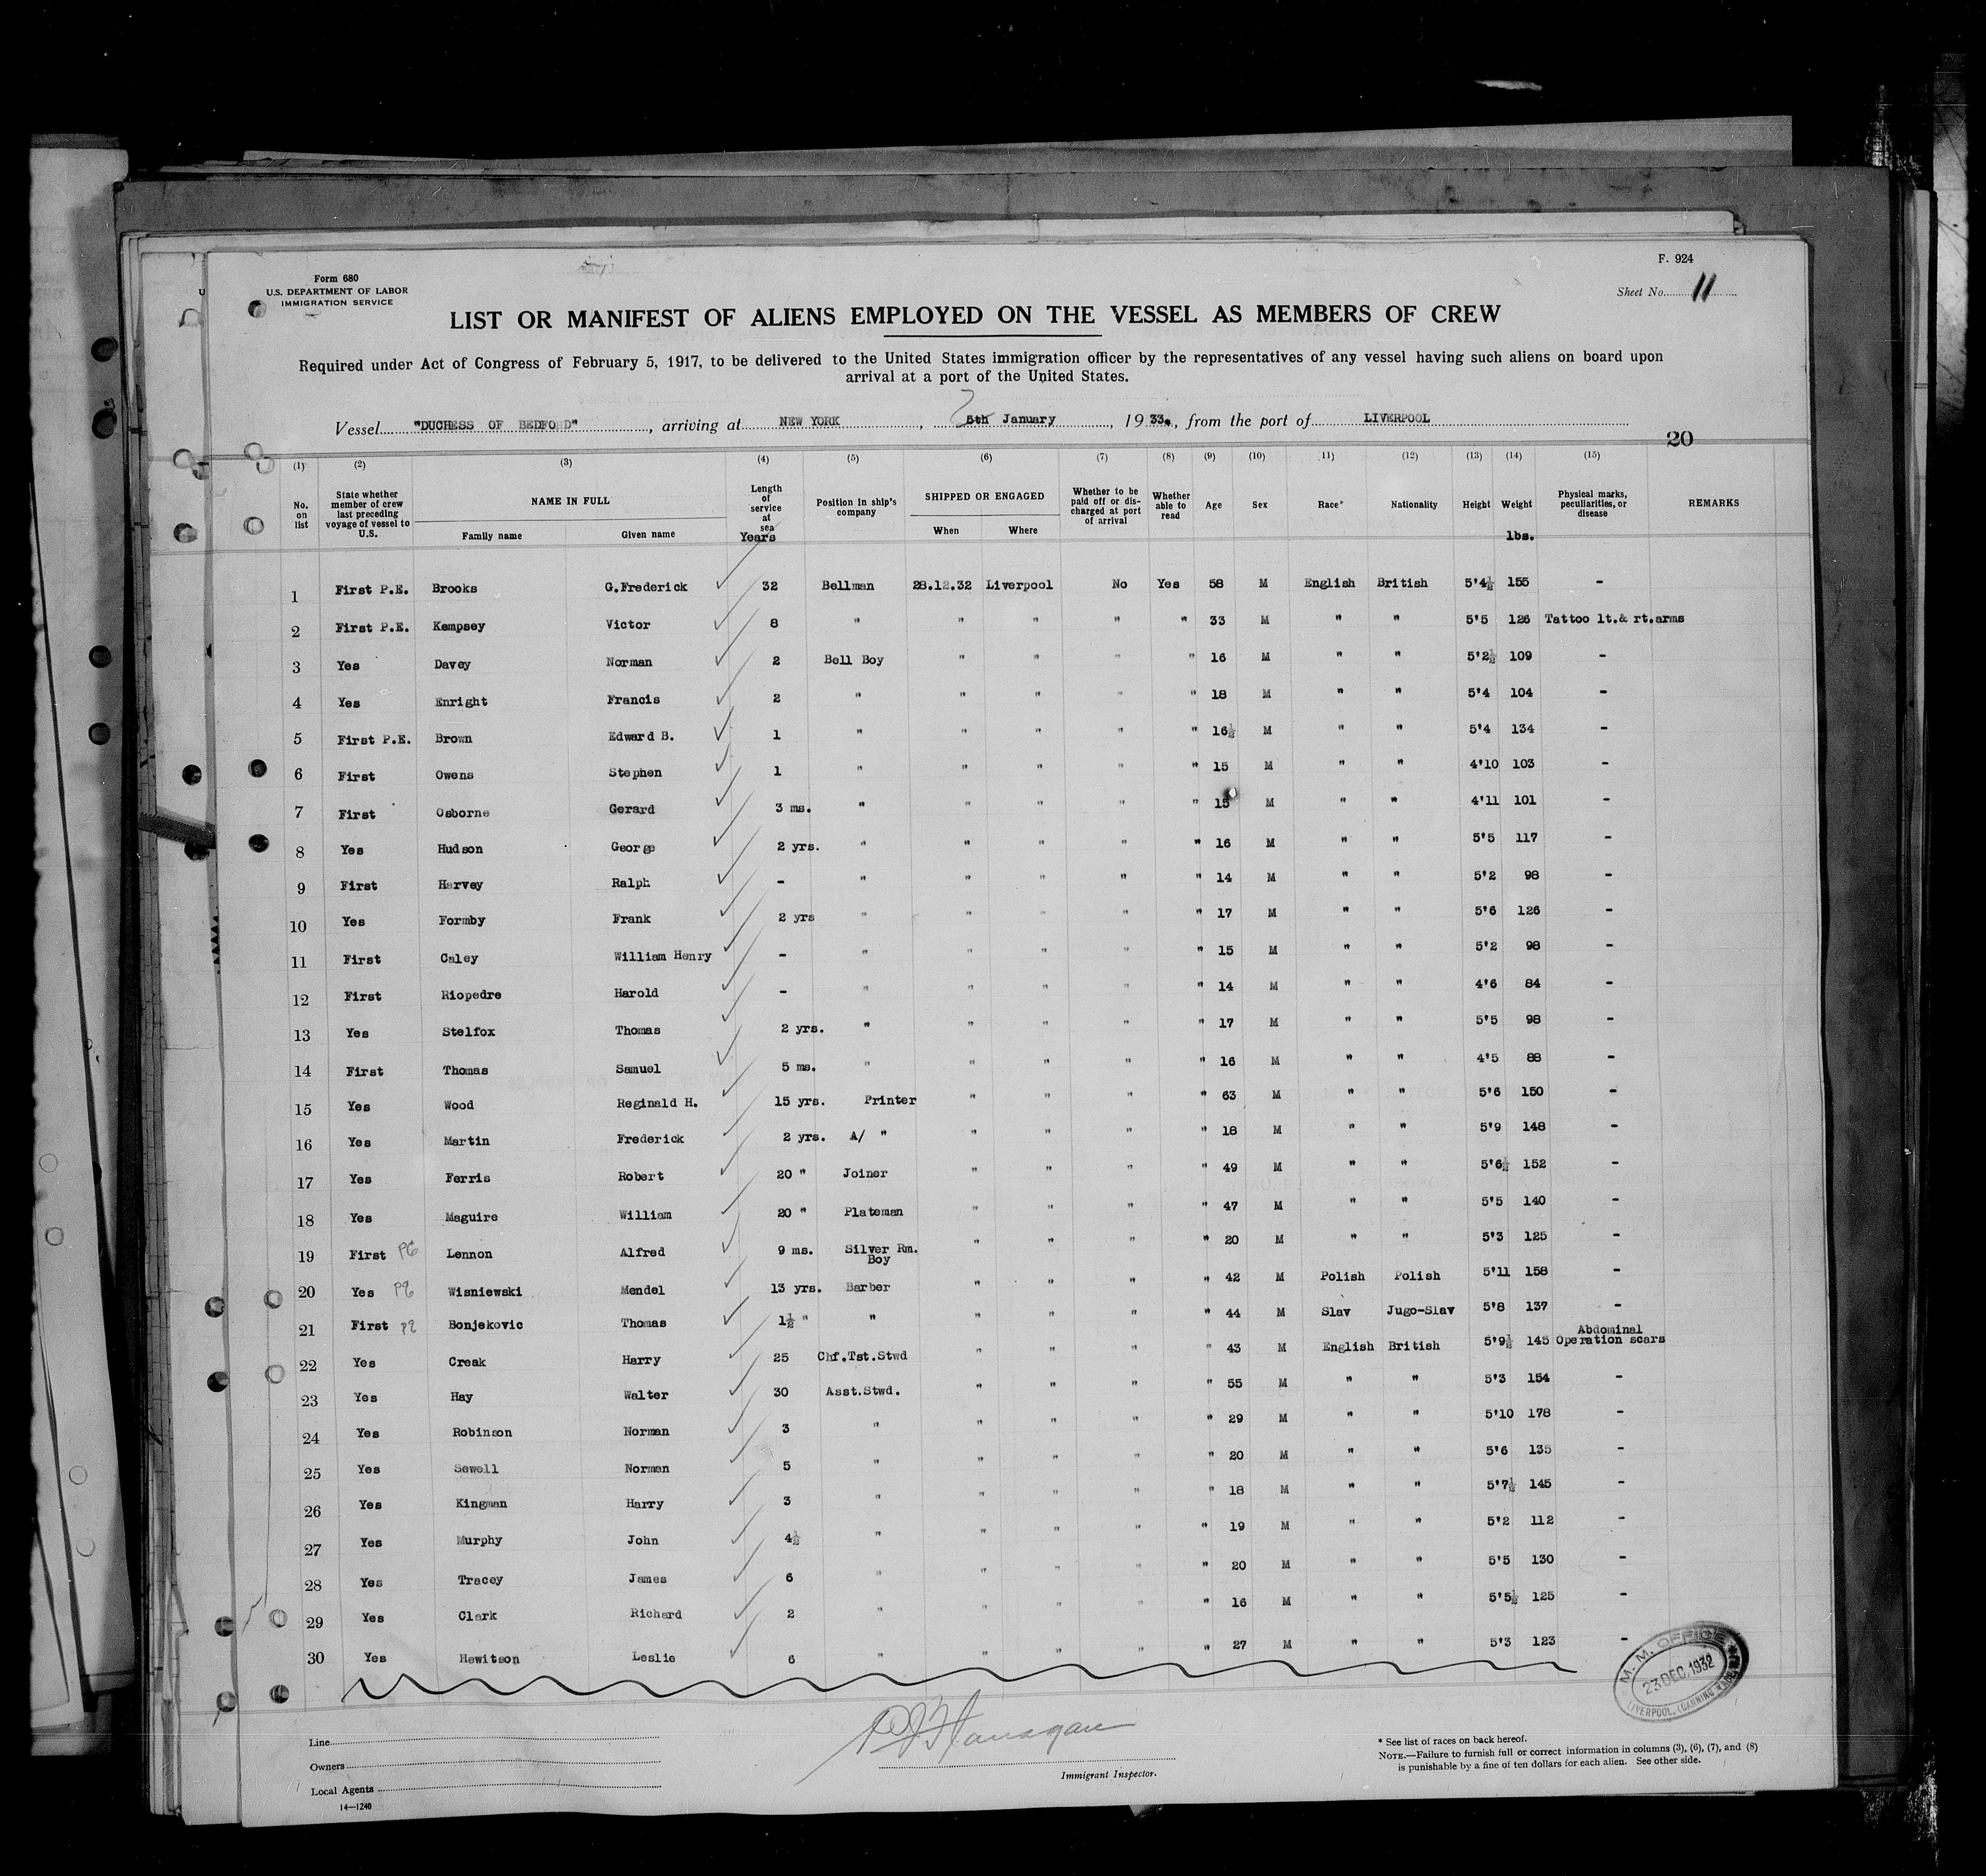 F. 924
Form 680
U.S. DEPARTMENT OF LABOR
IMMIGRATION SERVICE
Sheet No. 11
LIST OR MANIFEST OF ALIENS EMPLOYED ON THE VESSEL AS MEMBERS OF CREW
Required under Act of Congress of February 5, 1917, to be delivered to the United States immigration officer by the representatives of any vessel having such aliens on board upon
arrival at a port of the United States.
Vessel "DUCHESS OF BEDFORD", arriving at NEW YORK, 5th January, 1933., from the port of LIVERPOOL
20
(1) (2) (3) (4) (5) (6) (7) (8) (9) (10) 11) (12) (13) (14) (15)
No. on list State whether member of crew last preceding voyage of vessel to U.S. NAME IN FULL Family name Given name Length of service at sea Years Position in ship's company SHIPPED OR ENGAGED When Where Whether to be paid off or discharged at port of arrival Whether able to read Age Sex Race* Nationality Height Weight lbs. Physical marks, peculiarities, or disease REMARKS
1 First P.E. Brooks G.Frederick 32 Bellman 28.12.32 Liverpool No Yes 58 M English British 5'4½ 155 -
2 First P.E. Kempsey Victor 8 " " " " " 33 M " " 5'5 126 Tattoo lt.& rt.arms
3 Yes Davey Norman 2 Bell Boy " " " " 16 M " " 5'2½ 109 -
4 Yes Enright Francis 2 " " " " " 18 M " " 5'4 104 -
5 First P.E. Brown Edward B. 1 " " " " " 16½ M " " 5'4 134 -
6 First Owens Stephen 1 " " " " " 15 M " " 4'10 103 -
7 First Osborne Gerard 3 ms. " " " " " 15 M " " 4'11 101 -
8 Yes Hudson George 2 yrs. " " " " " 16 M " " 5'5 117 -
9 First Harvey Ralph - " " " " " 14 M " " 5'2 98 -
10 Yes Formby Frank 2 yrs " " " " " 17 M " " 5'6 126 -
11 First Caley William Henry - " " " " " 15 M " " 5'2 98 -
12 First Riopedre Harold - " " " " " 14 M " " 4'6 84 -
13 Yes Stelfox Thomas 2 yrs. " " " " " 17 M " " 5'5 98 -
14 First Thomas Samuel 5 ms. " " " " " 16 M " " 4'5 88 -
15 Yes Wood Reginald H. 15 yrs. Printer " " " " 63 M " " 5'6 150 -
16 Yes Martin Frederick 2 yrs. A/ " " " " " 18 M " " 5'9 148 -
17 Yes Ferris Robert 20 " Joiner " " " " 49 M " " 5'6½ 152 -
18 Yes Maguire William 20 " Plateman " " " " 47 M " " 5'5 140 -
19 First Lennon Alfred 9 ms. Silver Rm. Boy " " " " 20 M " " 5'3 125 -
20 Yes Wisniewski Mendel 13 yrs. Barber " " " " 42 M Polish Polish 5'11 158 -
21 First Bonjekovic Thomas 1½ " " " " " " 44 M Slav Jugo-Slav 5'8 137 -
22 Yes Creak Harry 25 Chf.Tst.Stwd " " " " 43 M English British 5'9½ 145 Abdominal Operation scars
23 Yes Hay Walter 30 Asst.Stwd. " " " " 55 M " " 5'3 154 -
24 Yes Robinson Norman 3 " " " " " 29 M " " 5'10 178 -
25 Yes Sewell Norman 5 " " " " " 20 M " " 5'6 135 -
26 Yes Kingman Harry 3 " " " " " 18 M " " 5'7½ 145 -
27 Yes Murphy John 4½ " " " " " 19 M " " 5'2 112 -
28 Yes Tracey James 6 " " " " " 20 M " " 5'5 130 -
29 Yes Clark Richard 2 " " " " " 16 M " " 5'5½ 125 -
30 Yes Hewitson Leslie 6 " " " " " 27 M " " 5'3 123 -
M. M. OFFICE
23 DEC. 1932
LIVERPOOL, (CANNING
Line
Owners
Local Agents
14—1240
Immigrant Inspector.
* See list of races on back hereof.
NOTE.—Failure to furnish full or correct information in columns (3), (6), (7), and (8)
is punishable by a fine of ten dollars for each alien. See other side.